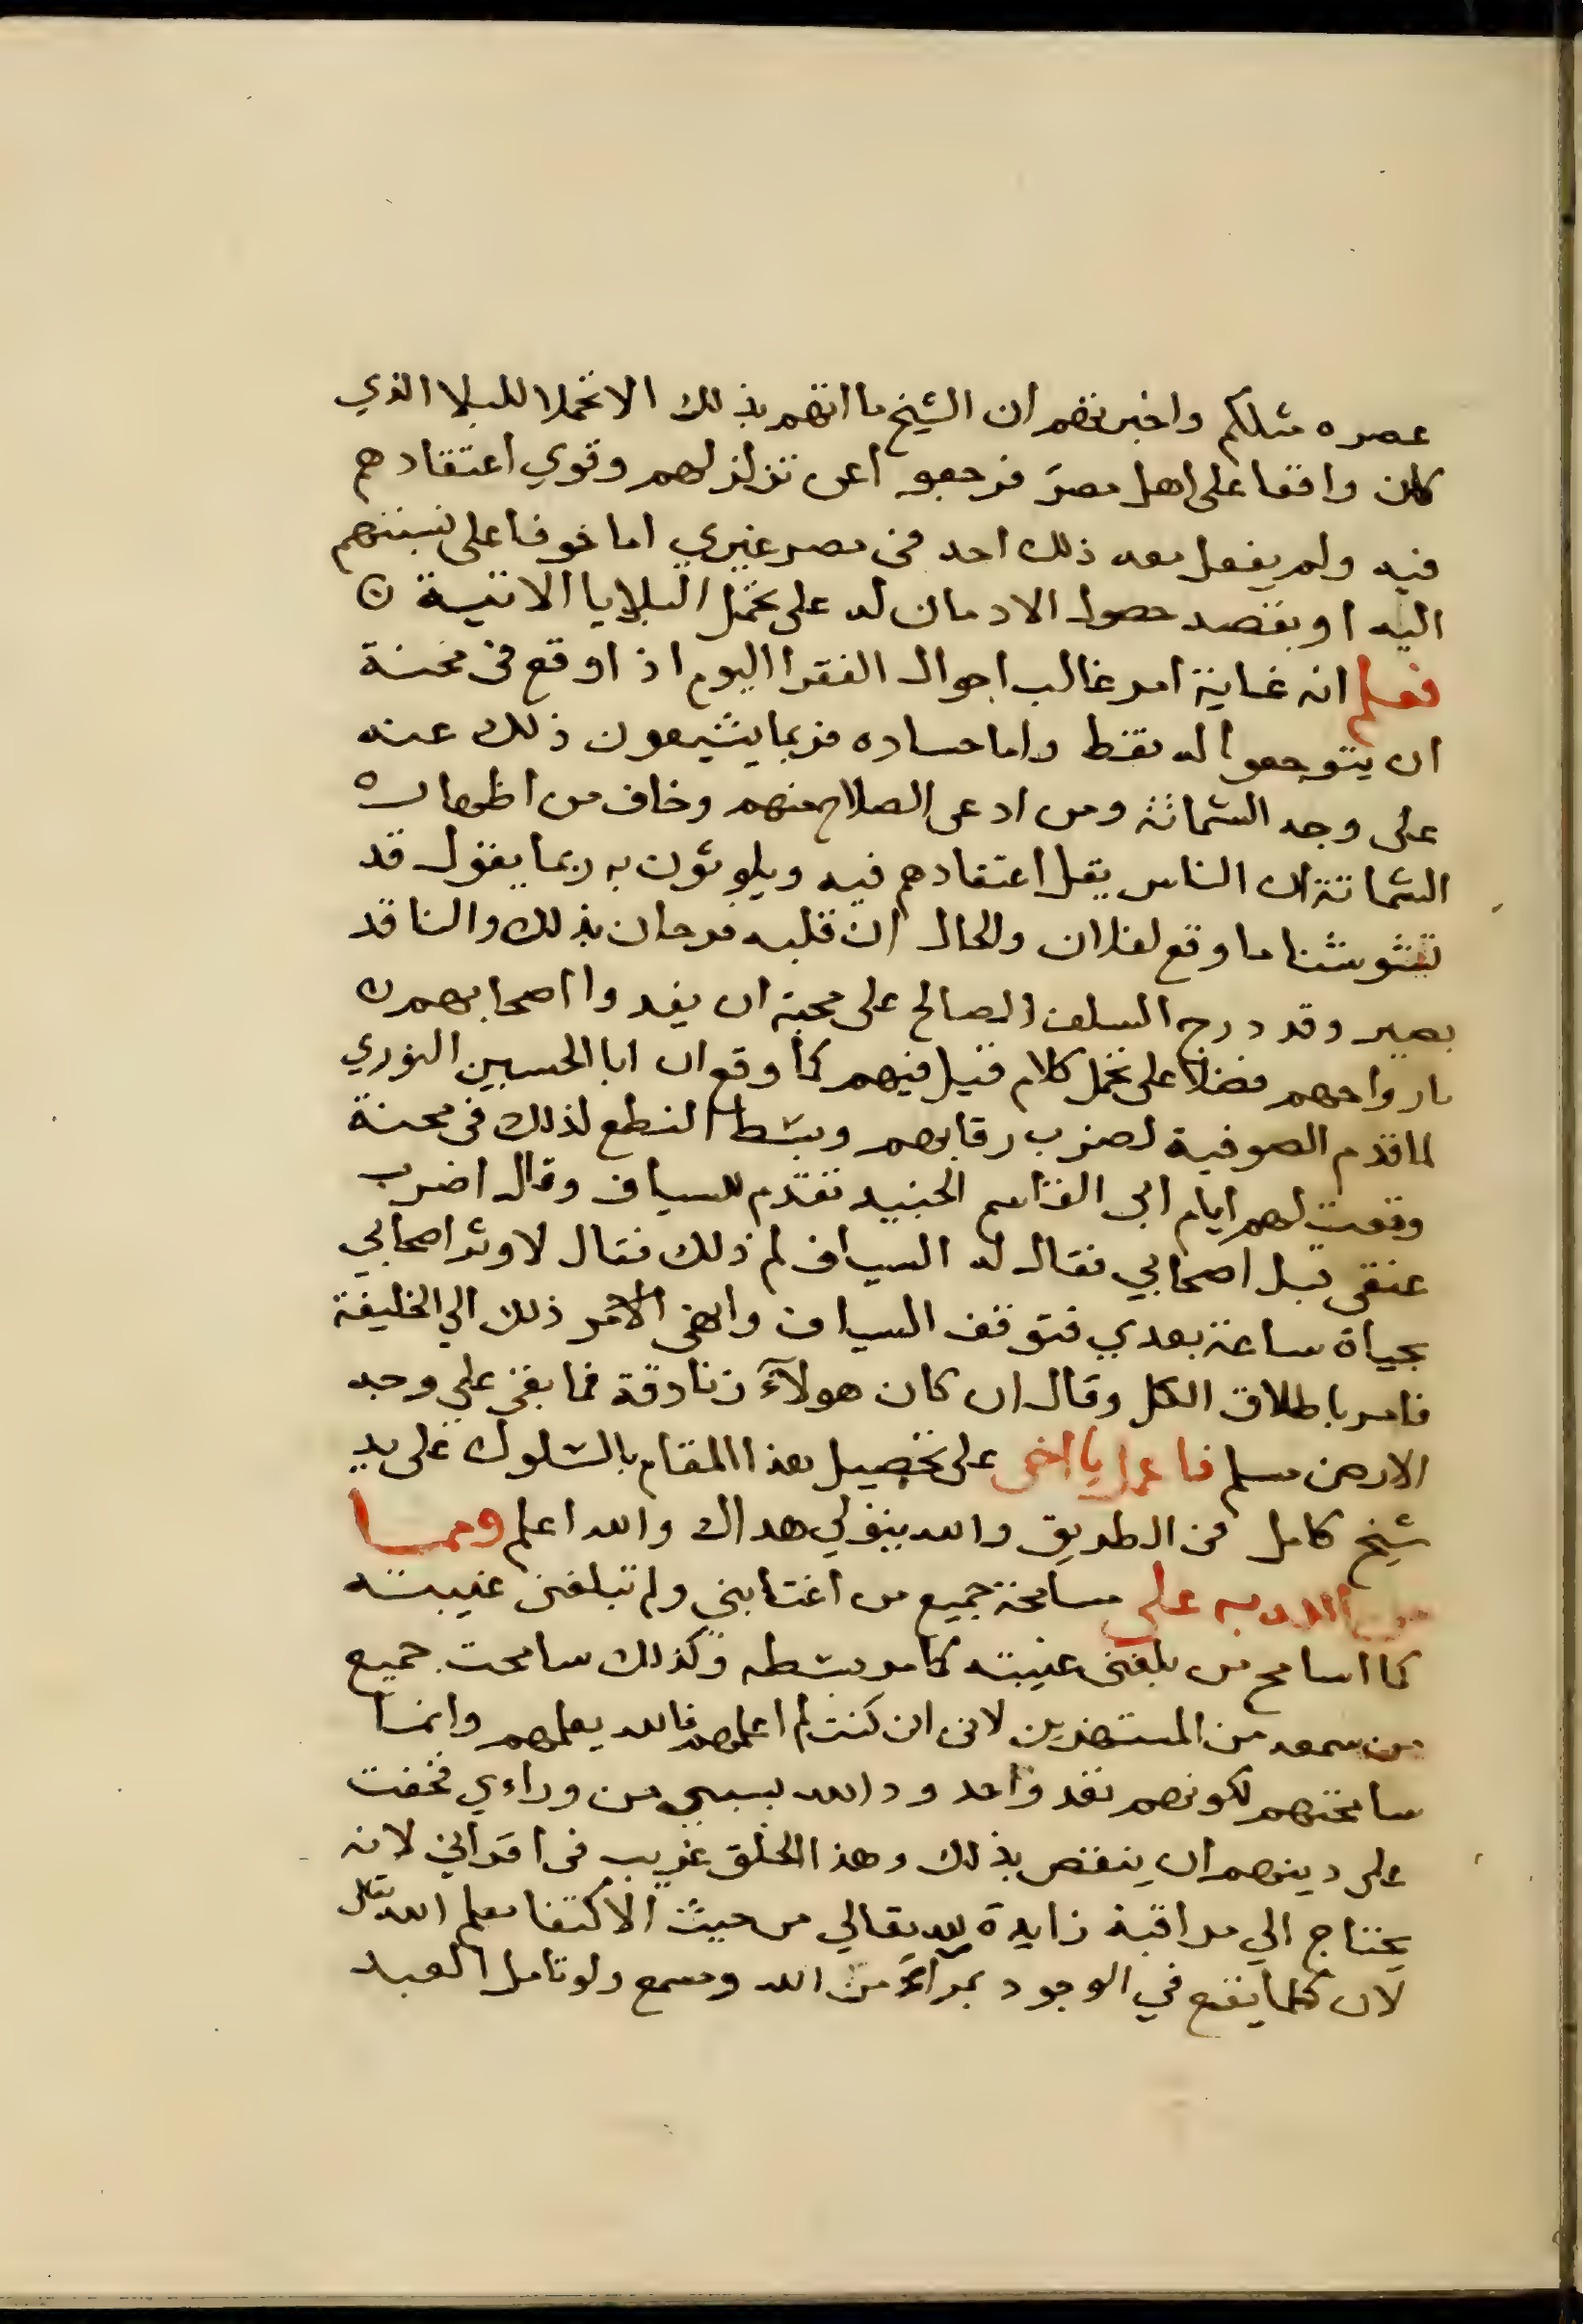 عصره مثلكم واخبرتهم ان الشيخ ما اتهم بذلك الا تحملا للبلا الذي
كان واقفا على اهل مصر فرجعوا عن تزلزلهم وقوي اعتقادهم
فيه ولم يفعل معه ذلك احد في مصر غيري اما خوفا على نسبتهم
اليه او بقصد حصول الادمان له على تحمل البلايا الاتية ن
فعلم انه غاية امر غالب احوال الفقرا اليوم اذا وقع في محنة
ان يتوجعوا له فقط واما حساده فربما يشيعون ذلك عنه
على وجه الشماتة ومن ادعى الصلاح منهم وخاف من اظهاره
الشماتة ان الناس يقل اعتقادهم فيه ويلوثون به ربما يقول قد
تشوشنا ما وقع لفلان والحال ان قلبه فرحان بذلك والناقد
بصير وقد درج السلف الصالح على محبة ان يفدوا اصحابهم ن
بارواحهم فضلا على تحمل كلام قيل فيهم كما وقع ان ابا الحسين النوري
لما قدم الصوفية لضرب رقابهم وبسط النطع لذلك في محنة
وقعت لهم ايام ابي القاسم الجنيد تقدم للسياف وقال اضرب
عنقي قبل اصحابي فقال له السياف لم ذلك فقال لاوثر اصحابي
بحياة ساعة بعدي فتوقف السياف وانهى الامر ذلك الي الخليفة
فامر باطلاق الكل وقال ان كان هولآء زنادقة فما بقي علي وجه
الارض مسلم فاعمل يا اخي على تحصيل هذا المقام بالسلوك على يد
شيخ كامل في الطريق والله يتولي هداك والله اعلم ومما
من الله به علي مسامحة جميع من اغتابني ولم تبلغني غيبته
كما اسامح من بلغني غيبته كما مر بسطه وكذلك سامحت جميع
من سمعه من المستهزين لاني ان كنت لم اعلمهم فالله يعلمهم وانما
سامحتهم لكونهم تعدوا حدود الله بسببي من وراءي فخفت
على دينهم ان ينقص بذلك وهذا الخلق غريب في اقراني لانه
يحتاج الي مراقبة زايدة لله تعالي من حيث الاكتفا بعلم الله تعالى
لان كلما يقع في الوجود بمرآء من الله ومسمع ولو تامل العبد